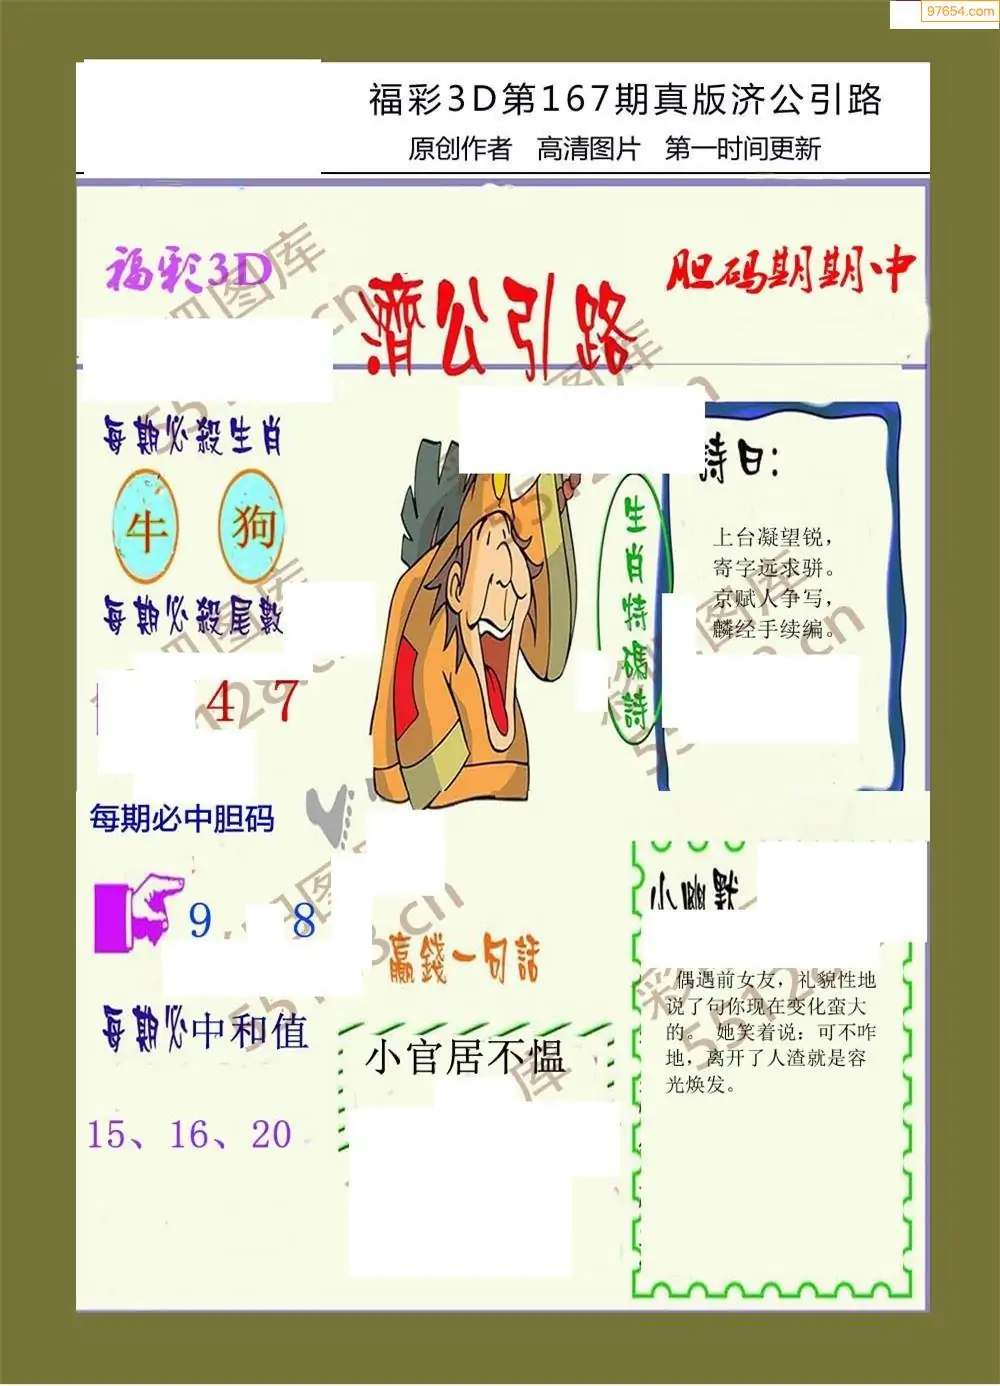 97654.com
福彩3D第167期真版济公引路
原创作者 高清图片 第一时间更新
福彩3D
胆码期期中
濟公引路
每期必殺生肖
牛 狗
每期必殺尾數
4 7
每期必中胆码
9 8
每期必中和值
15、16、20
生肖特碼詩
詩曰:
上台凝望锐，
寄字远求骈。
京赋人争写，
麟经手续编。
赢錢一句話
小官居不愠
小幽默
偶遇前女友，礼貌性地
说了句你现在变化蛮大
的。 她笑着说：可不咋
地，离开了人渣就是容
光焕发。